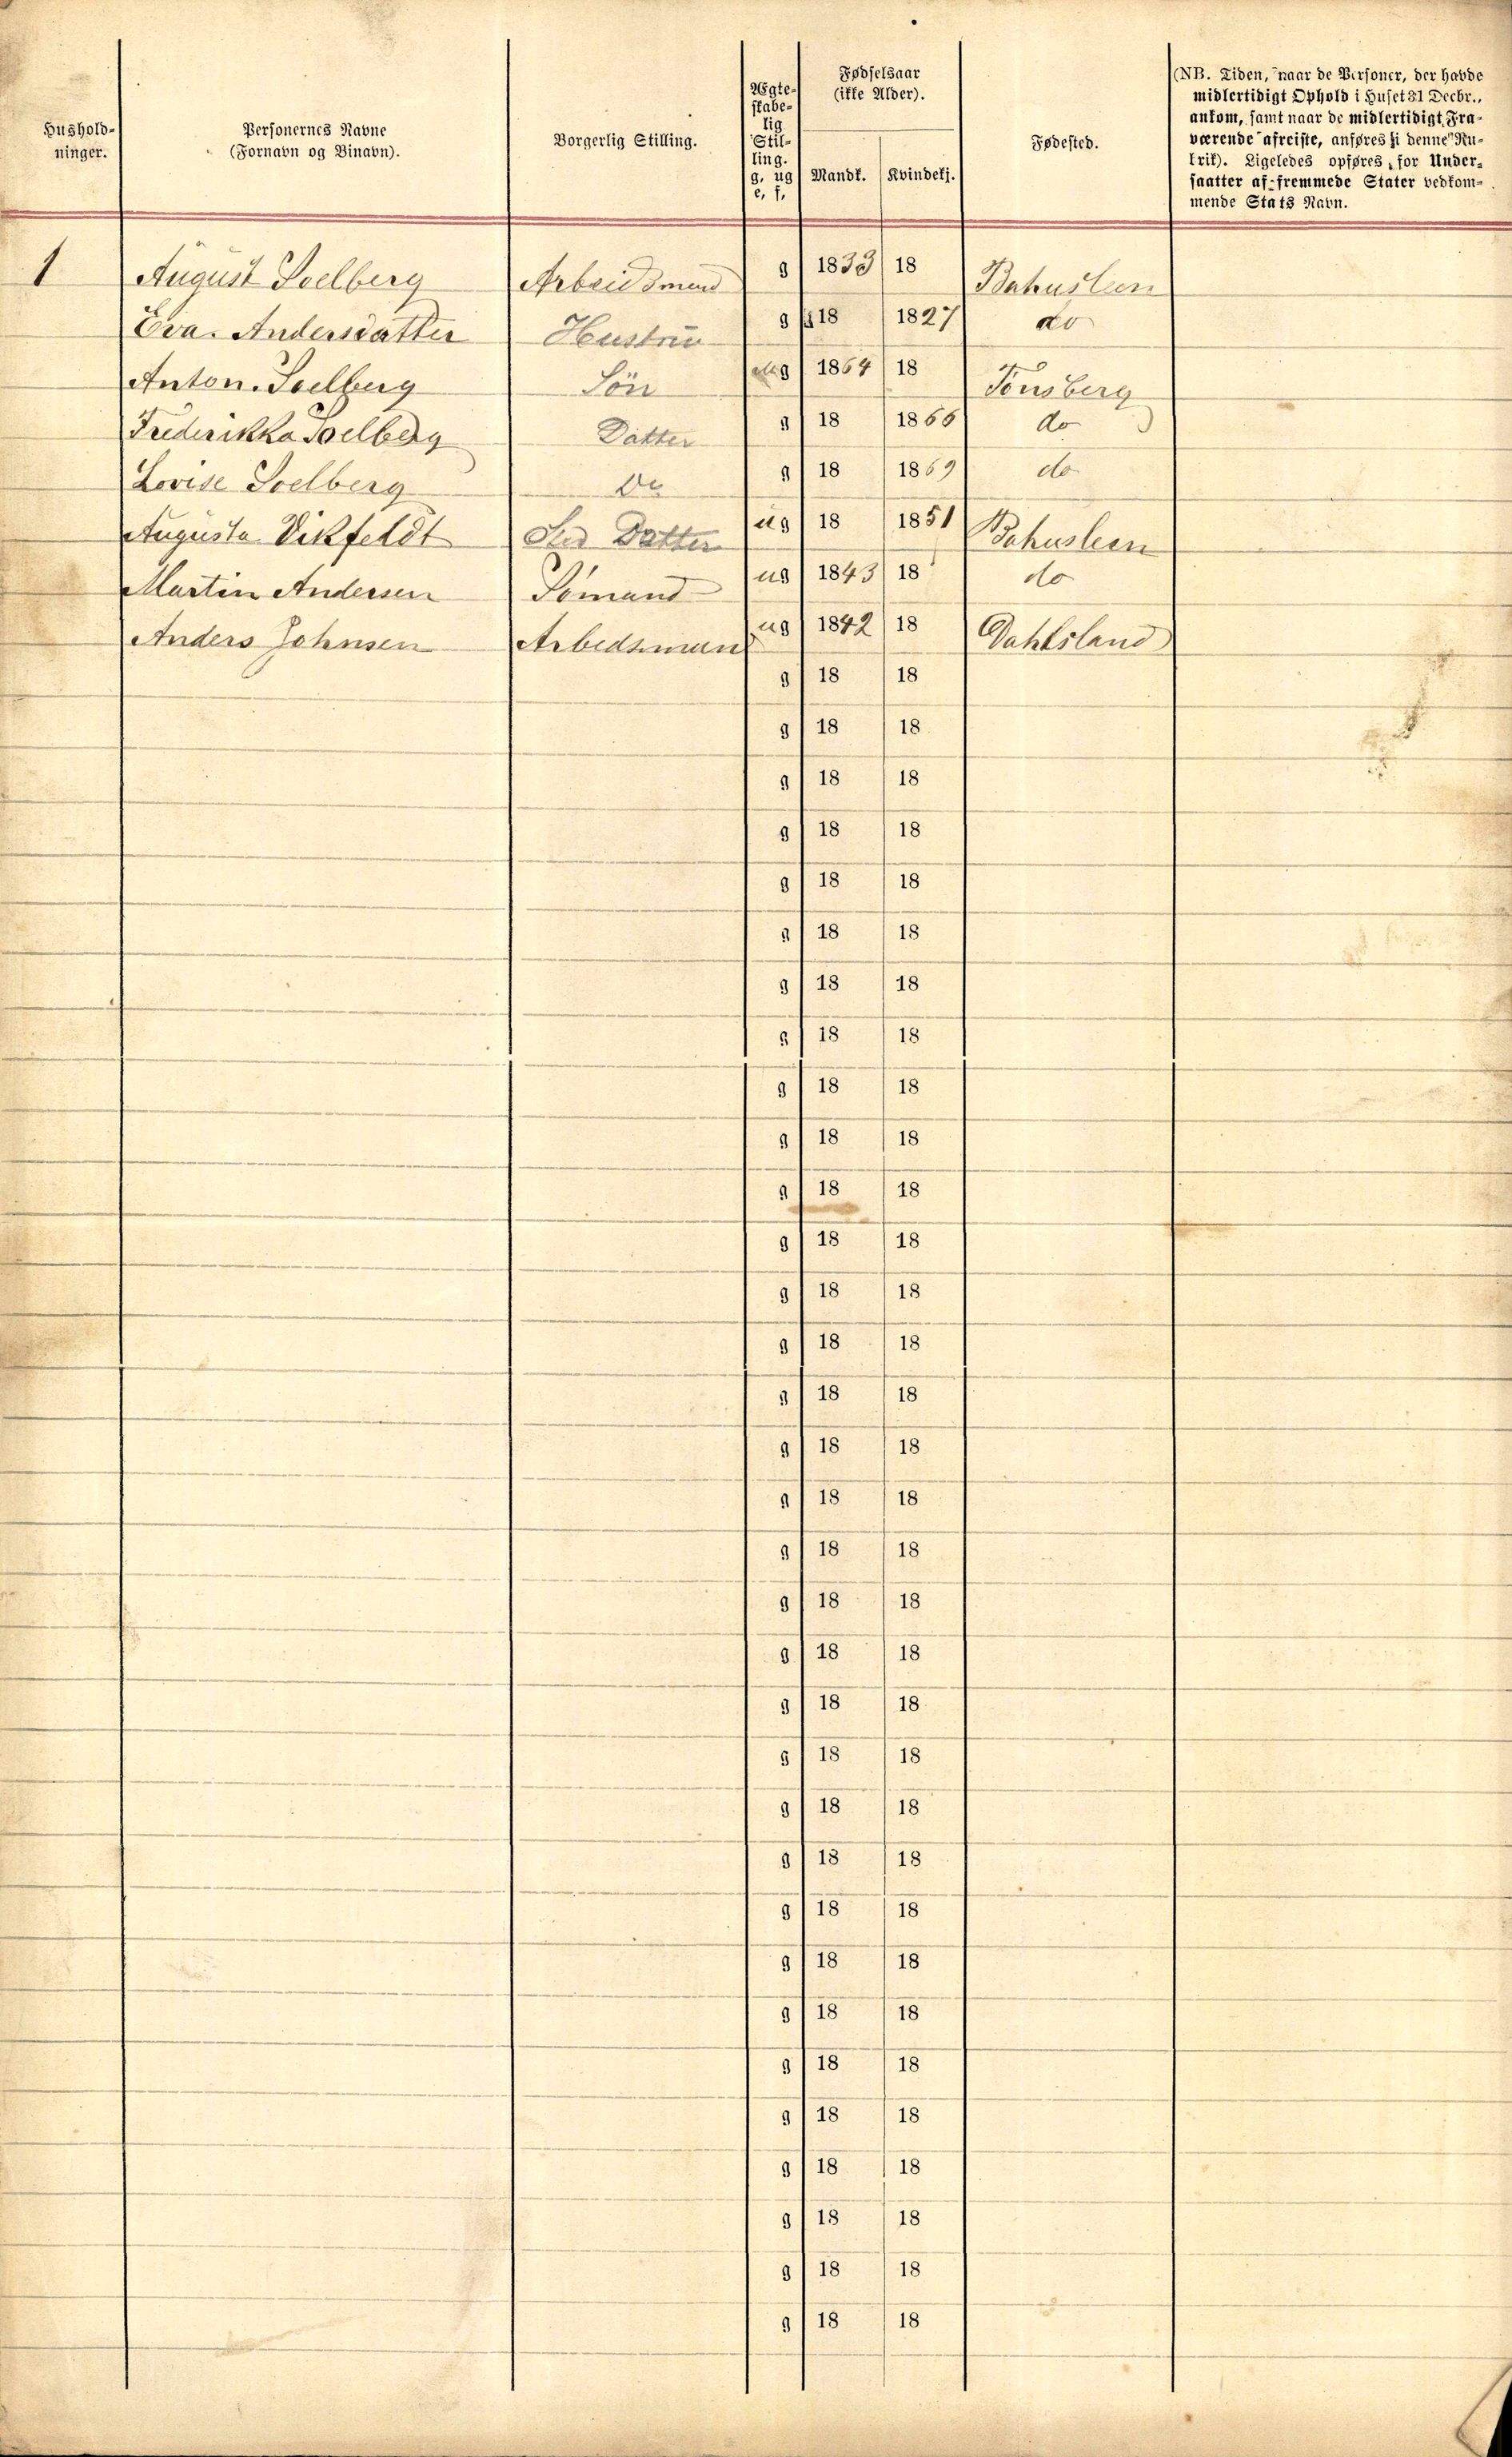 Hushold-
ninger.
Personernes Navne
(Fornavn og Binavn).
Borgerlig Stilling.
Ægte-
skabe-
lig
Stil-
ling.
g, ug
e, f,
Fødselsaar
(ikke Alder).
Mandk. Kvindekj.
Fødested.
(NB. Tiden, naar de Personer, der havde
midlertidigt Ophold i Huset 31 Decbr.,
ankom, samt naar de midlertidigt Fra-
værende afreiste, anføres i denne Ru-
brik). Ligeledes opføres for Under-
saatter af fremmede Stater vedkom-
mende Stats Navn.
1 August Soelberg Arbeidsmand g 1833 18 Bahusleen
Eva. Andersdatter Hustru g 18 1827 do
Anton. Soelberg Sön ug 1864 18 Tönsberg
Frederikka Soelberg Datter g 18 1866 do
Lovise Soelberg Do g 18 1869 do
Augusta Vikfeldt Sted Datter ug 18 1851 Bahusleen
Martin Andersen Sömand ug 1843 18 do
Anders Johnsen Arbedsmand ug 1842 18 Dahlsland
g 18 18
g 18 18
g 18 18
g 18 18
g 18 18
g 18 18
g 18 18
g 18 18
g 18 18
g 18 18
g 18 18
g 18 18
g 18 18
g 18 18
g 18 18
g 18 18
g 18 18
g 18 18
g 18 18
g 18 18
g 18 18
g 18 18
g 18 18
g 18 18
g 18 18
g 18 18
g 18 18
g 18 18
g 18 18
g 18 18
g 18 18
g 18 18
g 18 18